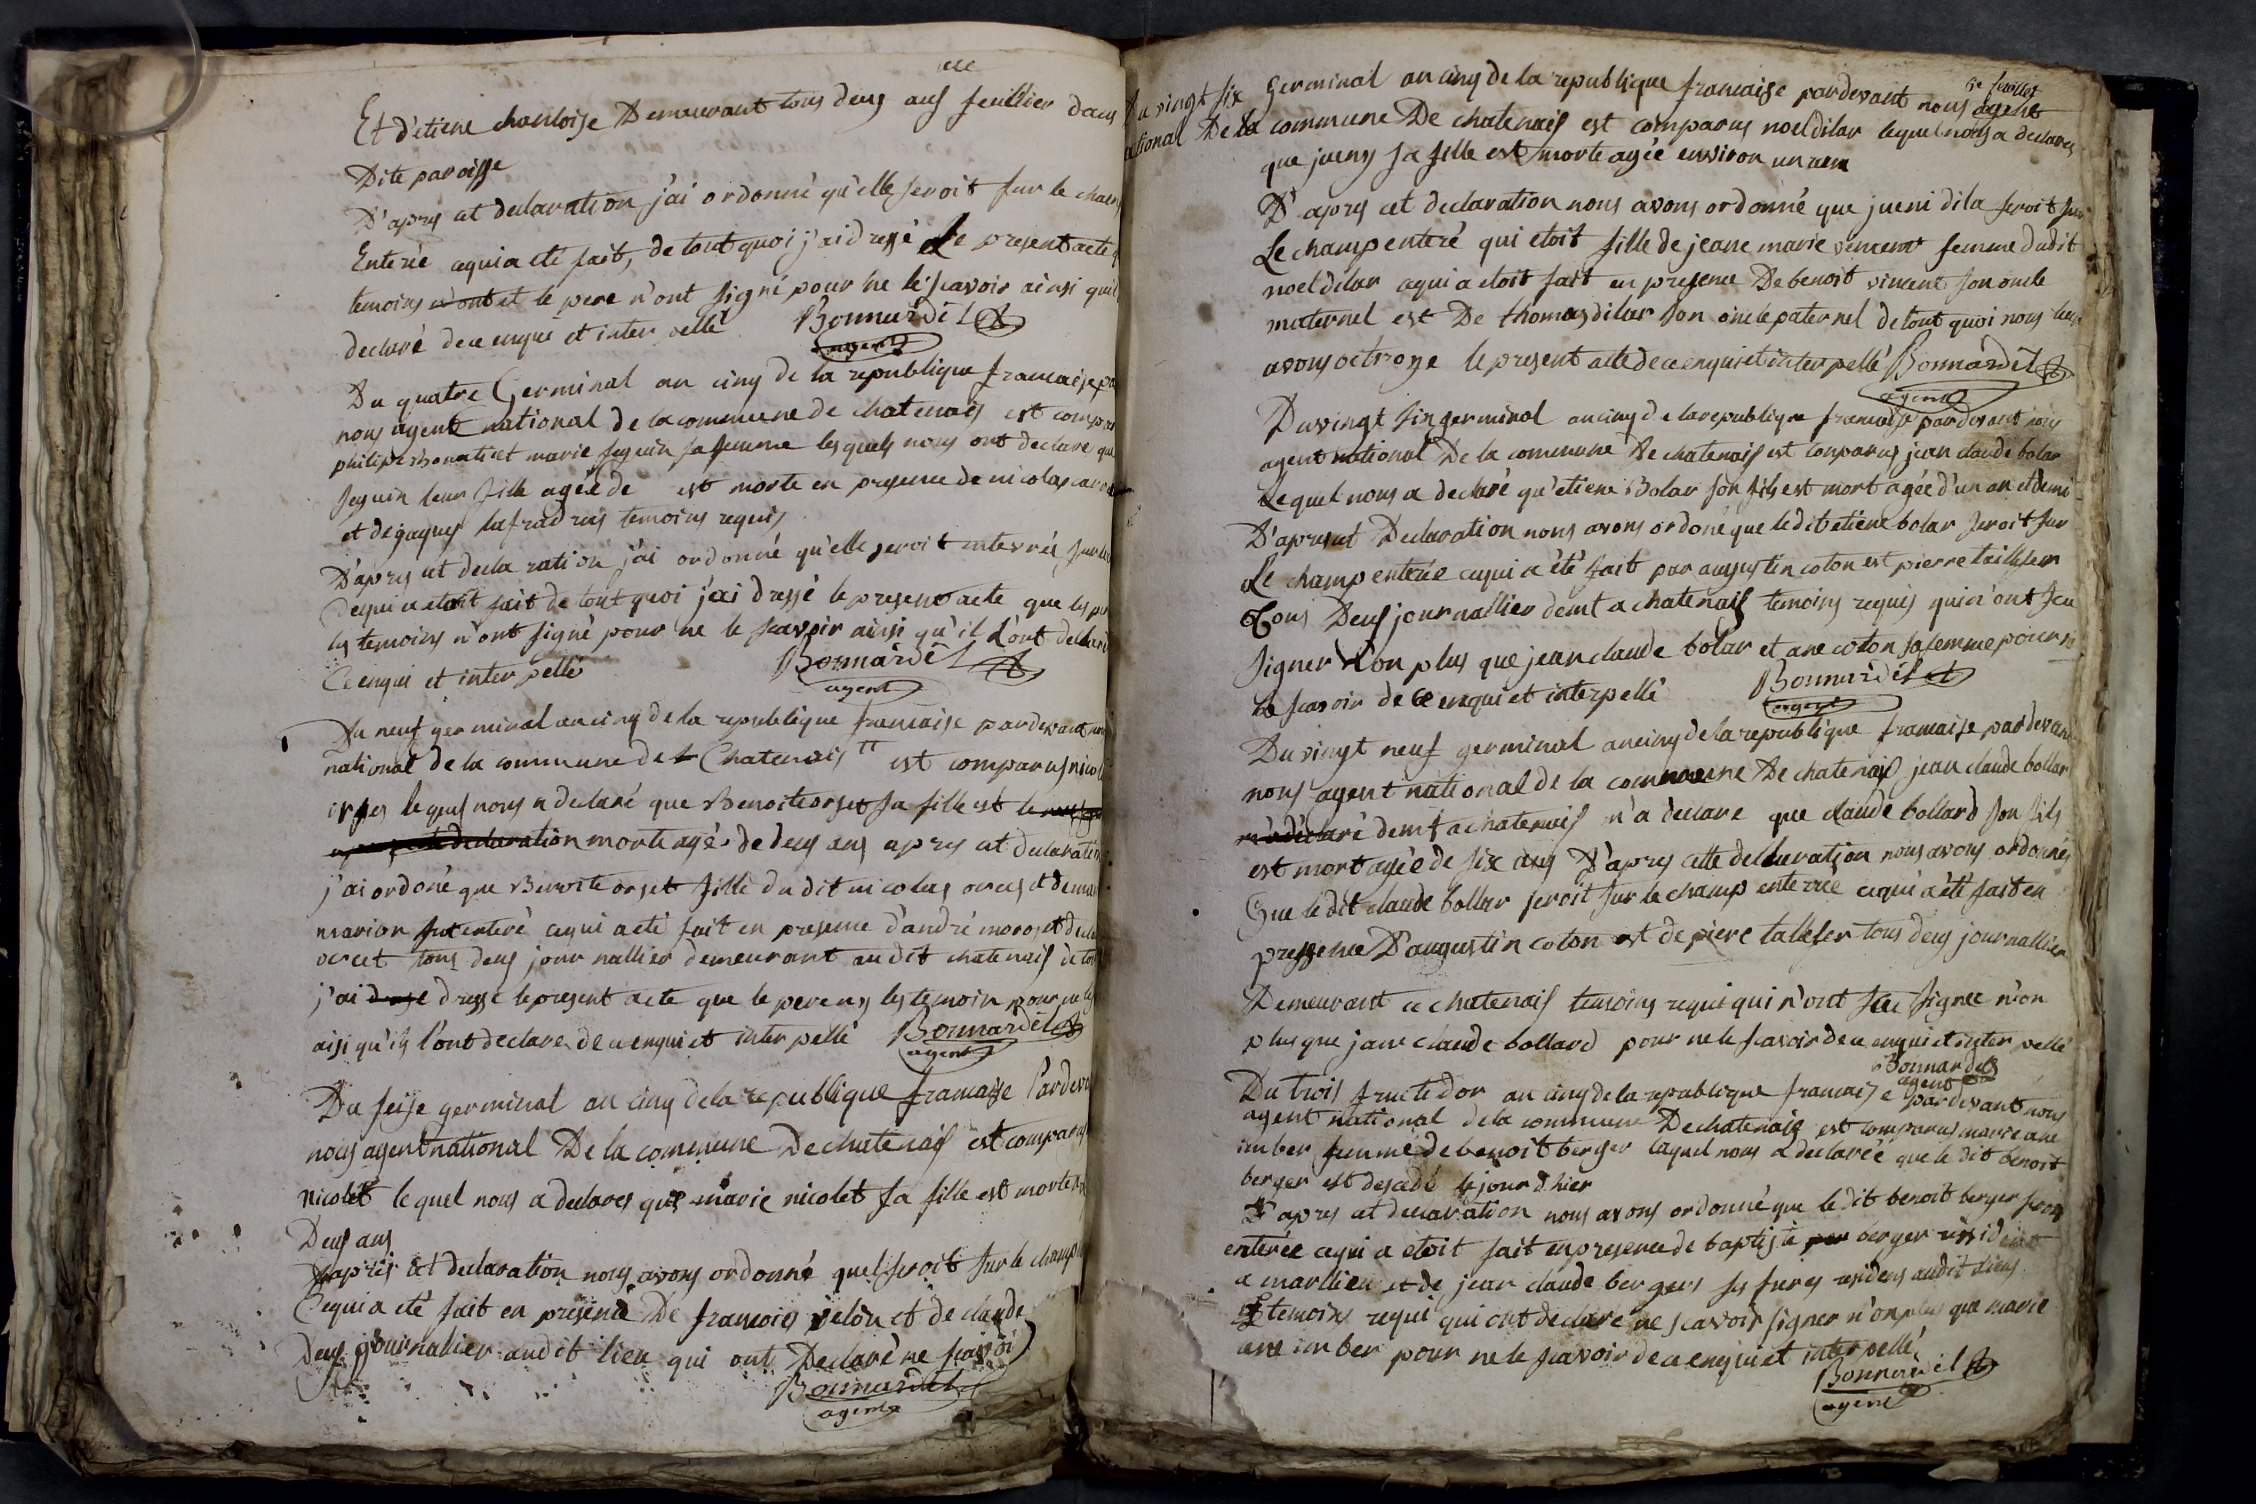 Et d'etiene chanloise Demeurant tous deus aus feuillier dans
Dite paroisse
D'aprys cet declaration j'ai ordonné qu'elle seroit sur le cham
Enterié cequi a été fait, de tout quoi j'ai dressé Le present acte q
temoins n'ont et le pere n'ont signé pour ne le scavoir ainsi quil
declaré de ce enquis et inter pellé Bonnardel
agent
Du quatre Germinal an cinq de la republique francaise pa
nous agent national de la commune de chatenais est compar
philipe Bonati et marie seguin sa femme lesquels nous ont declare que
seguin leur fille agée de est morte en presence de nicolas
et de jaques temoins requis
D'aprys cet decla ration j'ai ordonné qu'elle seroit enterrée sur le
Cequi a etoit fait de tout quoi j'ai dressé le present acte que les per
les temoins n'ont signé pour ne le scavoir ainsi qu'il L'ont declaré
Ce enqui et inter pellé Bonnardel
agent
Du neuf germinal an cinq de la republique francaise pardevant nou
national de la commune de Chatenais est comparus nicola
orset lequel nous a declaré que Benoite orset sa fille est le
declaration morte agé de deus ans aprys cet declaration
j'ai ordoné que Benoite orset fille du dit nicolas orcet et de mar
marion fut enteré cequi a eté fait en presence d'andré moros et de
orcet tous deus jour nallier demeurant au dit chatenais de tou
j'ai dresse dressé le present acte que le pere ny les temoin pour ne le s
aisi qu'ils l'ont declare de ce enqui et inter pellé Bonnardel
agent
Du seise germinal an cinq de la republique francaise Pardeva
nous agent national De la commune De chatenais est comparus
nicolet le quel nous a declares que marie nicolet sa fille est morte
Deus ans
D'aprés cet declaration nous avons ordonné quel seroit sur le champ
Cequi a eté fait en presence De francois velon et de claude
Deus journalier audit lieu qui ont Declaré ne scavoi
Bonnardel
agent
5e feuillet
Du vingt six Germinal an cinq de la republique francaise pardevant nous agent
national De la commune De chatenais est comparus noel dilar lequel nous a declares
que jueny sa fille est morte agée environ un
D'aprys cet declaration nous avons ordonné que jueni dila seroit sur
Le champ enteré qui etoit fille de jeane marie vincent femme dudit
noel dilar cequi a etoit fait en presence De benoit vincent son oncle
maternel est De thomas dilar son oncle paternel de tout quoi nous
avons octroye le present acte de ce enqui et interpellé Bonnardel
agent
Du vingt sis germinal an cinq de la republique francaise pardevant nous
agent national De la commune De chatenais est comparus jean claude bolar
Lequel nous a declaré qu'etiene Bolar son fils est mort agée d'un an et demi
D'aprys cet Declaration nous avons ordoné que ledit etiene bolar seroit sur
Le champ enterée cequi a été fait par augustin coton est pierre
Tous Deus journallier demt a chatenais temoins requis qui n'ont scu
signer Non plus que jean claude bolar et ane coton sa femme pour ne
Le scavoir de ce enqui et interpellé Bonnardel
agent
Du vingt neuf germinal an cinq de la republique francaise pardevant
nous agent national de la commune De chatenais jean claude bollar
m'a déclaré demt a chatenais n'a declare que claude bollard son fils
est mort agée de six ans D'apres cette declaration nous avons ordonnés
Que le dit claude bollar seroit sur le champ enterrée cequi a été fait en
pressence D'augustin coton et de piere tous deus journallier
Demeurant a chatenais temoins requi qui n'ont scu signee n'on
plus que jean claude bollard pour ne le scavoir de ce enqui et inter pellé
Bonnardel
agent
Du trois fructidor an cinq de la republique francaise pardevant nous
agent national de la commune De chatenais est comparus marie ane
imber femme de benoit berger laquel nous a declarée que le dit benoit
berger est desedé le jour d hier
D'aprys cet decaration nous avons ordonné que le dit benoit berger seroit
enterée cequi a etoit fait en presence de baptiste berger resident
a marllieu et de jean claude bergers ses freres residens audit lieus
temoins requi qui ont declaré ne scavoir signer n'on plus que marie
ane imber pour ne le scavoir de ce enqui et inter pellé
Bonnardel
agent